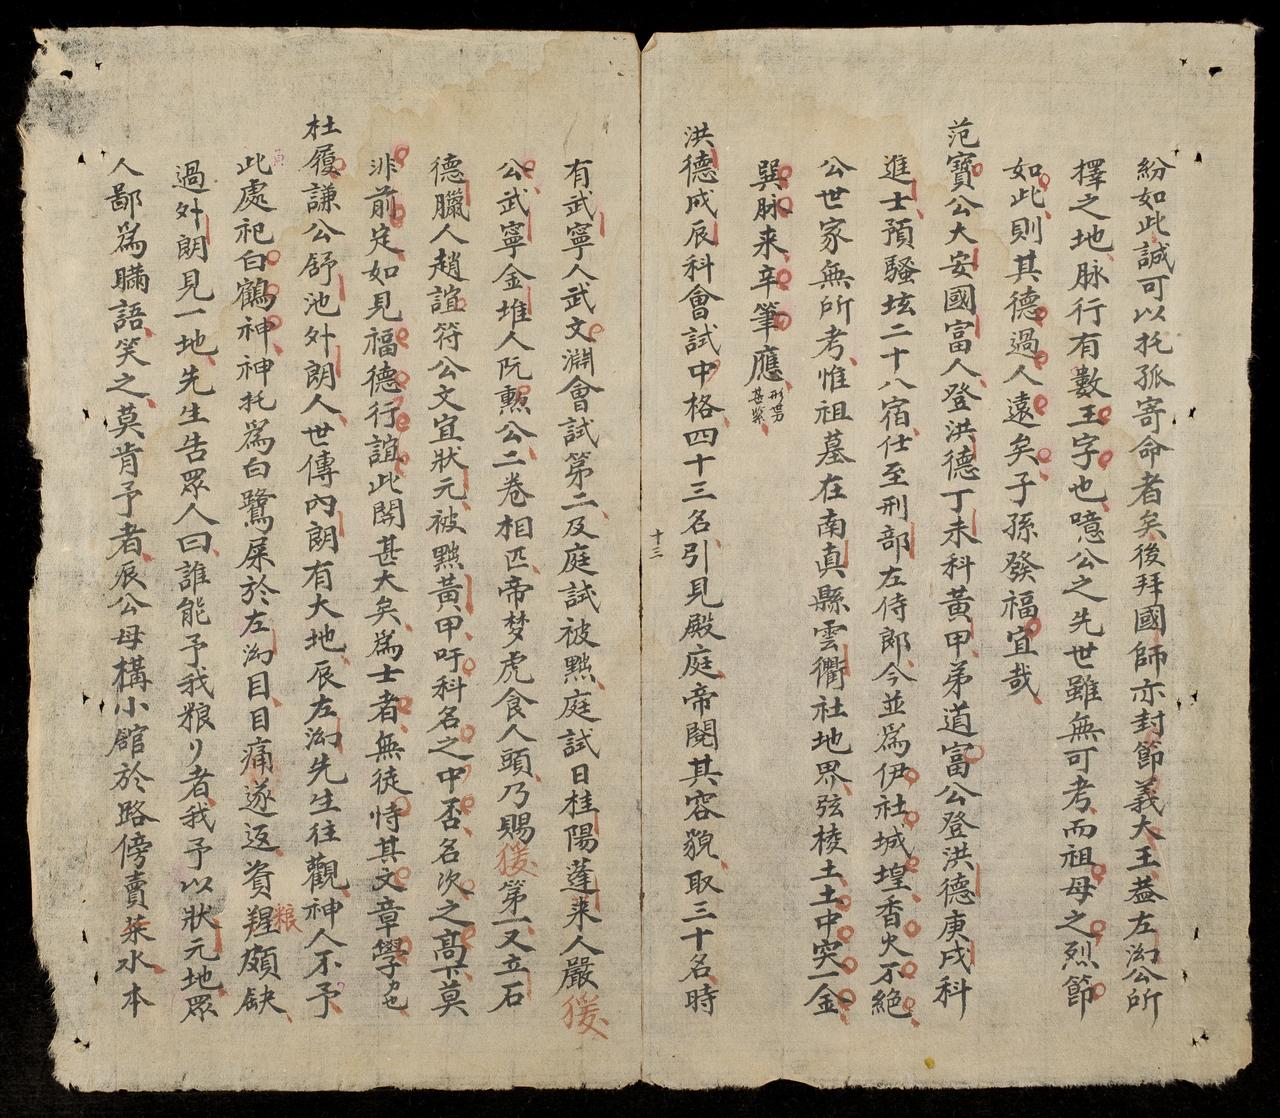 紛如此誠可以托孤寄命者矣後拜國師亦封節義大王葢左沟公所
擇之地脉行有數王字也噫公之先世雖無可考而祖母之烈節
如此則其德過人遠矣子孫發福宜哉
范寶公大安國富人登洪德丁未科黃甲弟道富公登洪德庚戌科
進士預騷坛二十八宿仕至刑部左侍郎今並爲伊社城隍香火不絶
公世家無所考惟祖墓在南真縣雲衢社地界弦棱土土中突一金
巽脉来辛筆應形勢甚紧
洪德戍辰科會試中格四十三名引見殿庭帝閱其容貌取三十名時
十三
有武寧人武文淵會試第二及庭試被㸃庭試日桂陽蓬来人嚴猨
公武寧金堆人阮勲公二卷相匹帝梦虎食人頭乃賜猨第一又立石
德臘人趙誼符公文宜狀元被㸃黃甲吁科名之中否名次之高下莫
非前定如見福德行誼此関甚大矣爲士者無徒恃其文章學力也
杜履謙公舒池外朗人世傳內朗有大地辰左沟先生往觀神人不予
此處祀白鶴神神托爲白鷺屎於左沟目目痛遂返賫粮頗缺
過外朗見一地先生告眾人曰誰能予我粮り者我予以狀元地眾
人鄙爲瞞語笑之莫肯予者辰公母構小館於路傍賣茶水本